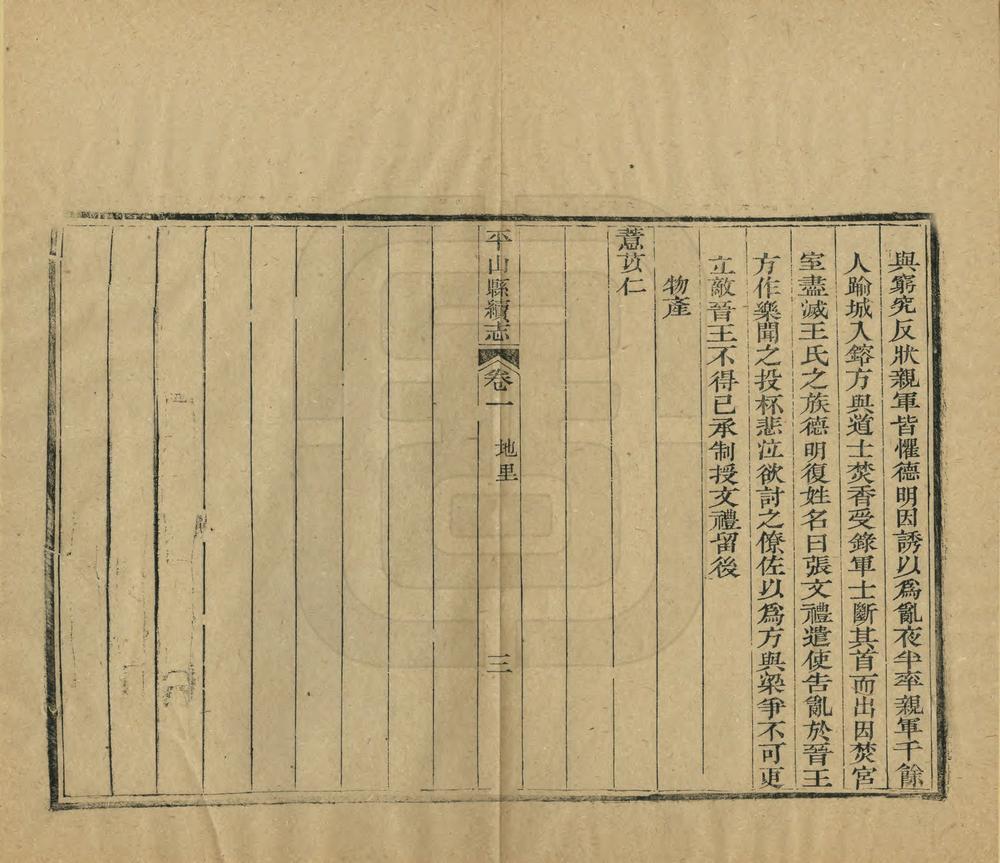 與窮究反狀親軍皆懼德明因誘以爲亂夜半率親軍千餘
人踰城入鎔方與道士焚香受籙軍士斷其首而出因焚宮
室盡滅王氏之族德明復姓名曰張文禮遣使告亂於晉王
方作樂聞之投杯悲泣欲討之僚佐以爲方與梁爭不可更
立敵晉王不得已承制授文禮留後
物產
薏苡仁
平山縣續志 卷一 地里 三